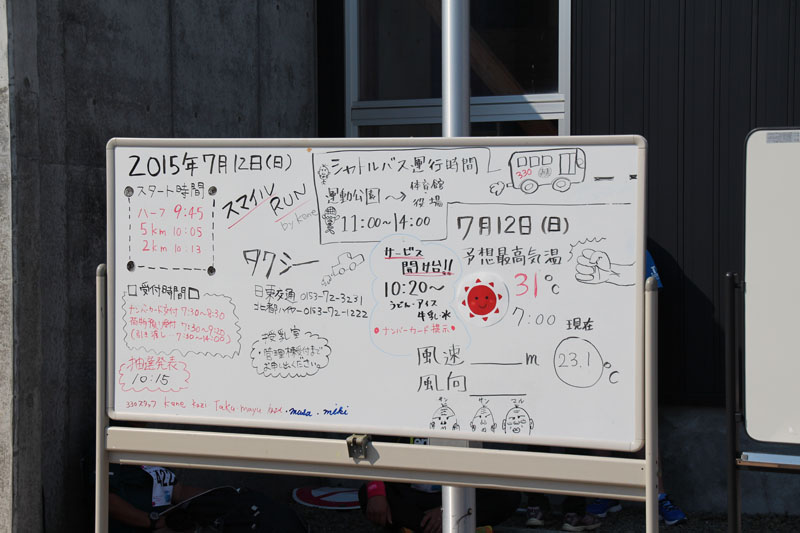 2015年7月12日(日)
スタート時間
ハーフ 9:45
5km 10:05
2km 10:13
スマイル
RUN
by kane
シャトルバス運行時間
330
運動公園→体育館・役場
11:00~14:00
タクシー
日東交通 0153-72-3231
北都ハイヤー 0153-72-1222
受付時間
ナンバーカード交付 7:30~8:30
荷物預け受付 7:30~9:20
(引き渡し 7:30~14:00)
抽選発表
10:15
授乳室
・管理棟受付まで
お申し出ください。
サービス
開始!!
10:20~
うどん・アイス
牛乳・水
ナンバーカード提示
7月12日(日)
予想最高気温
31℃
7:00
現在
23.1℃
風速 m
風向
サン サン マル
330スタッフ kane kazi Taku mayu
・masa・miki
422